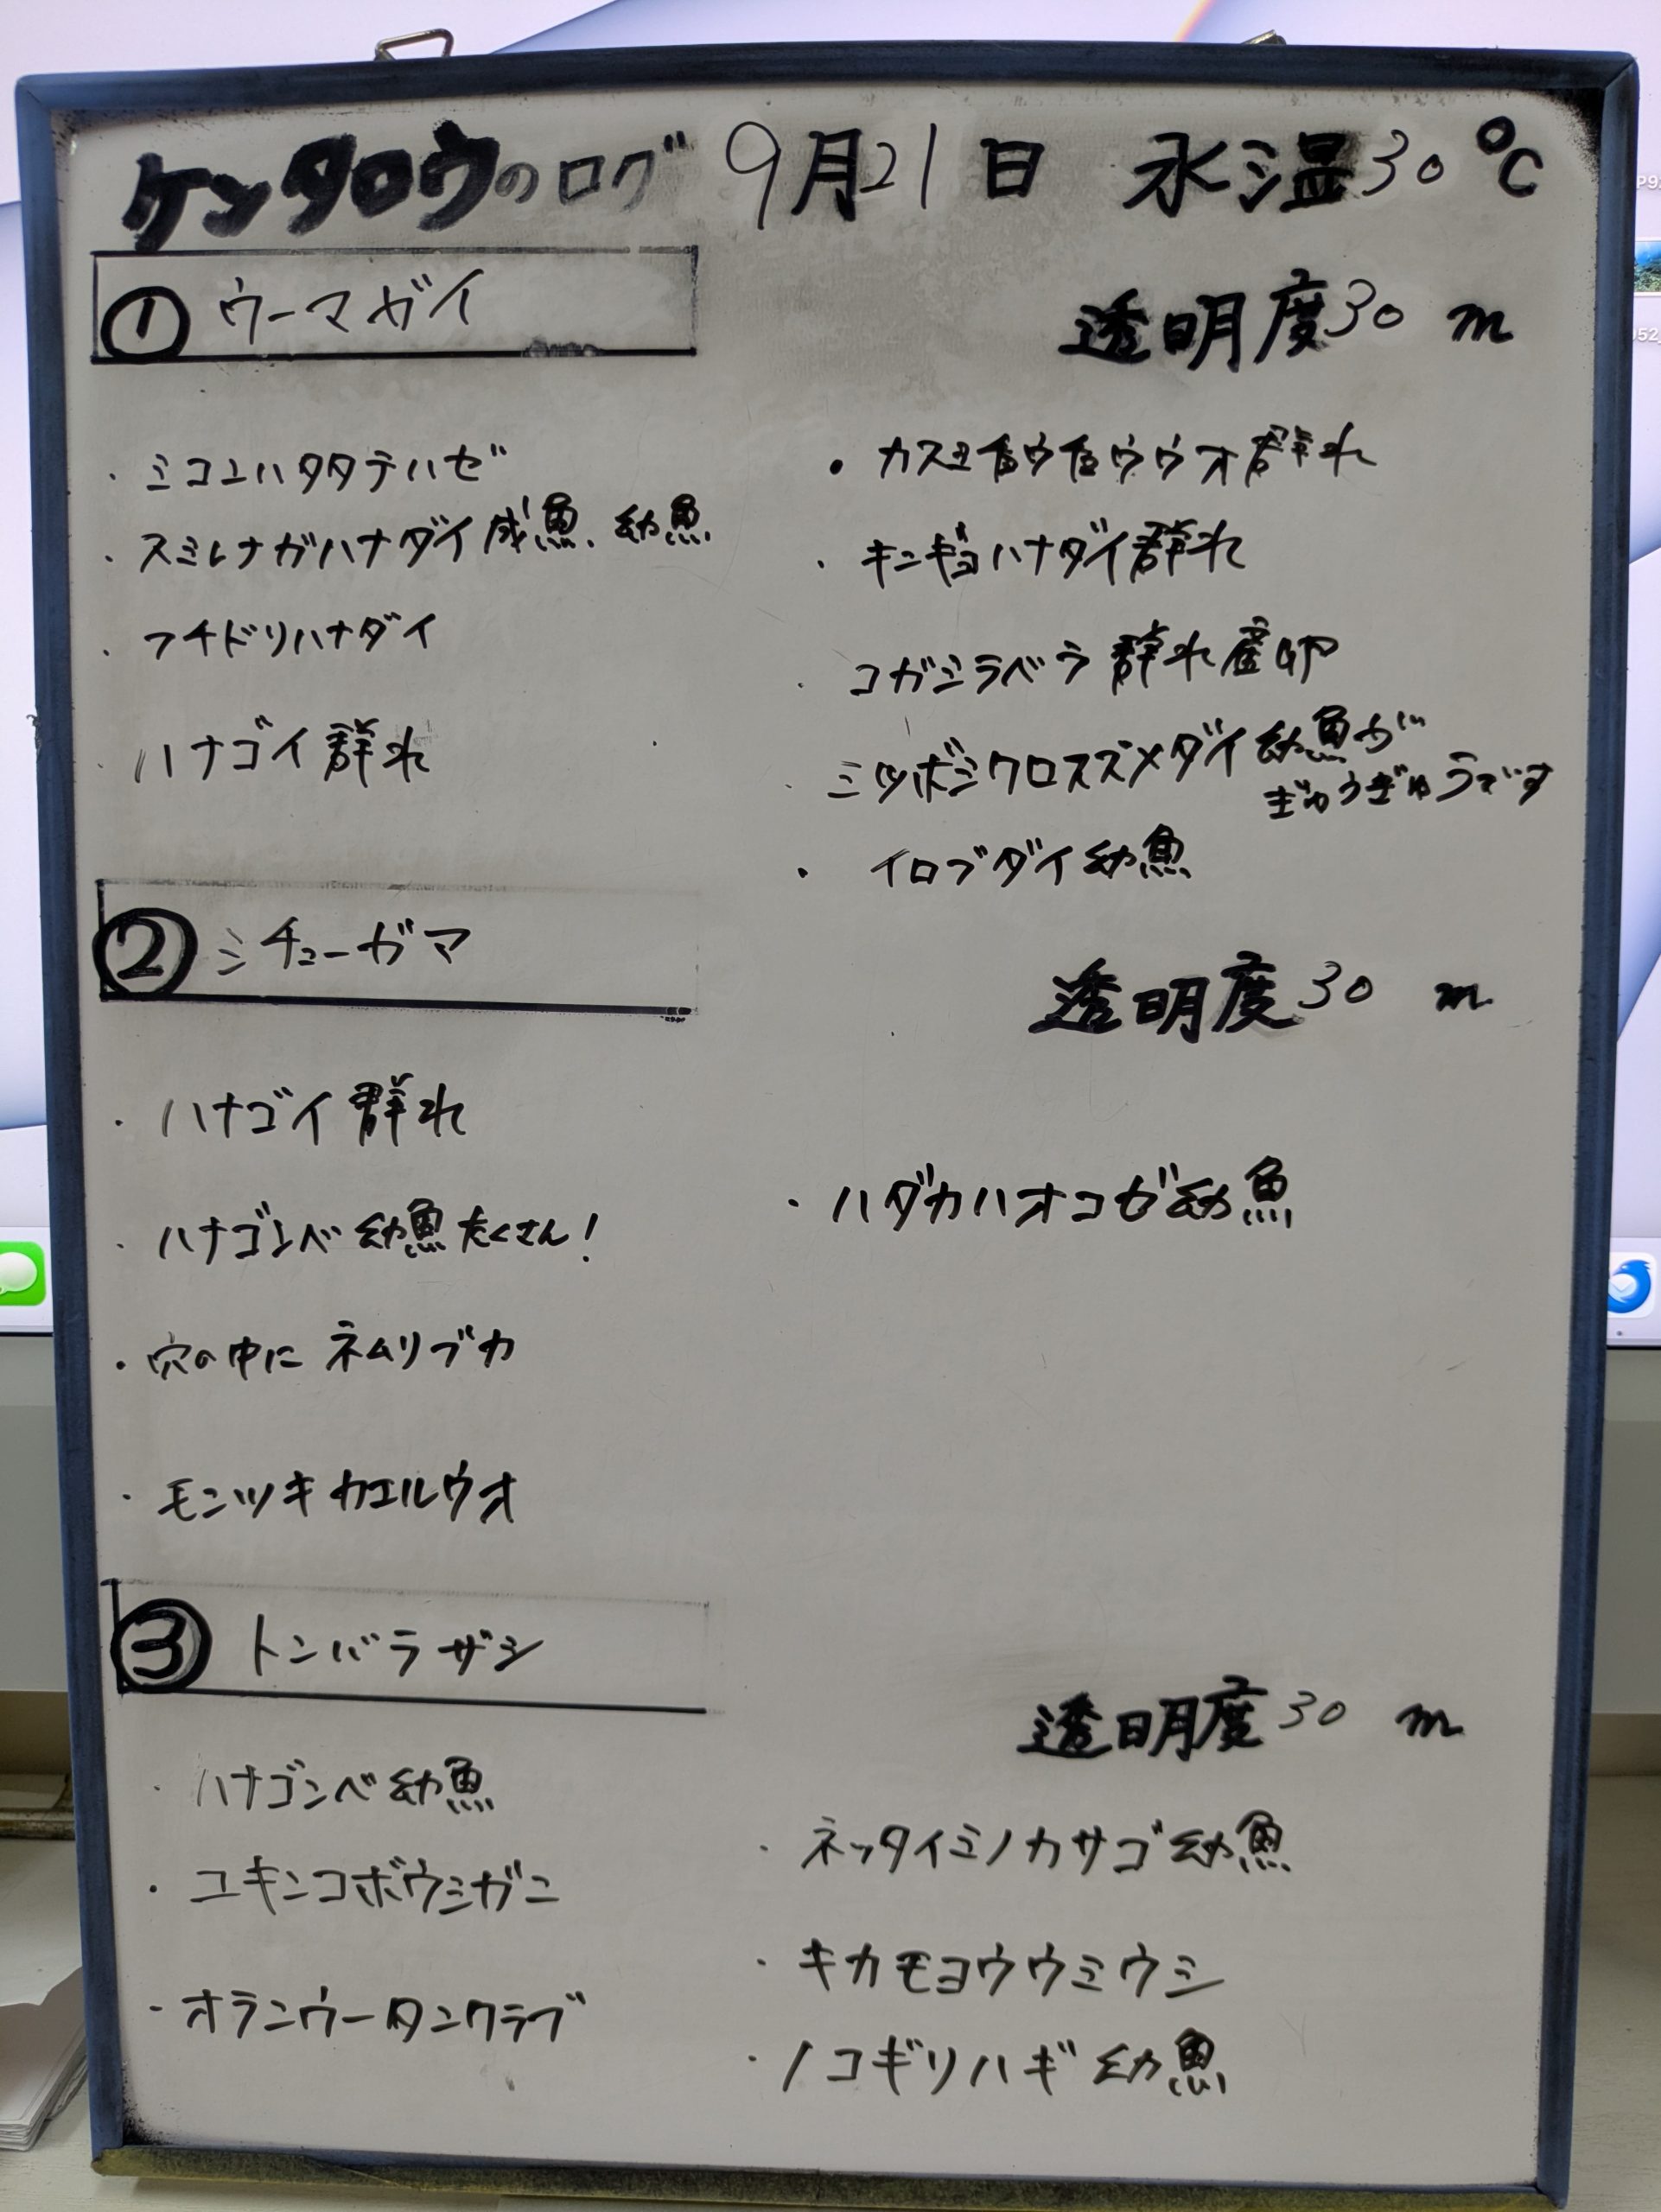 ケンタロウのログ 9月21日 水温30℃
① ウーマガイ
透明度30 m
・ミコンハタタテハゼ
・スミレナガハナダイ成魚、幼魚
・フチドリハナダイ
・ハナゴイ群れ
・カスミチョウチョウウオ群れ
・キンギョハナダイ群れ
・コガシラベラ群れ産卵
・ミツボシクロスズメダイ幼魚が
ぎゅうぎゅうです
・イロブダイ幼魚
② ミチューガマ
透明度30 m
・ハナゴイ群れ
・ハナゴンベ幼魚たくさん!
・穴の中にネムリブカ
・モンツキカエルウオ
・ハダカハオコゼ幼魚
③ トンバラザシ
透明度30 m
・ハナゴンベ幼魚
・ユキンコボウシガニ
・オランウータンクラブ
・ネッタイミノカサゴ幼魚
・キカモヨウウミウシ
・ノコギリハギ幼魚